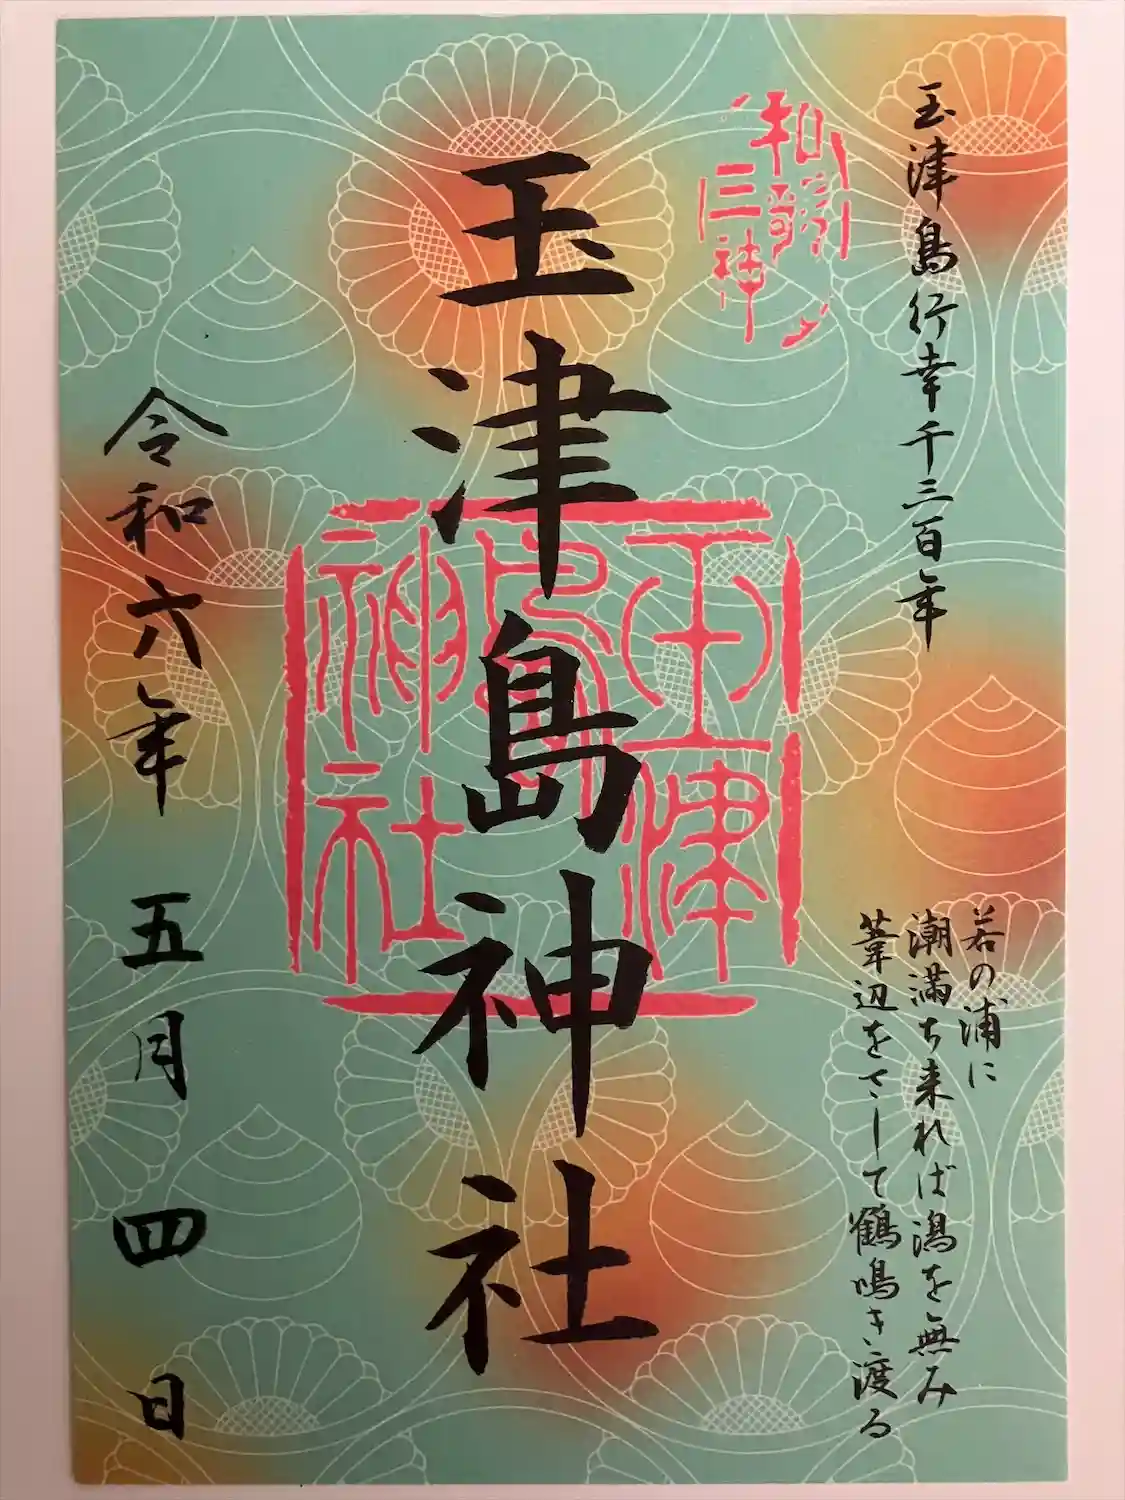 玉津島行幸千三百年
若の浦に
潮満ち来れば潟を無み
葦辺をさして鶴鳴き渡る
和歌
三神
玉津島神社
玉津
島
神社
令和六年 五月 四日